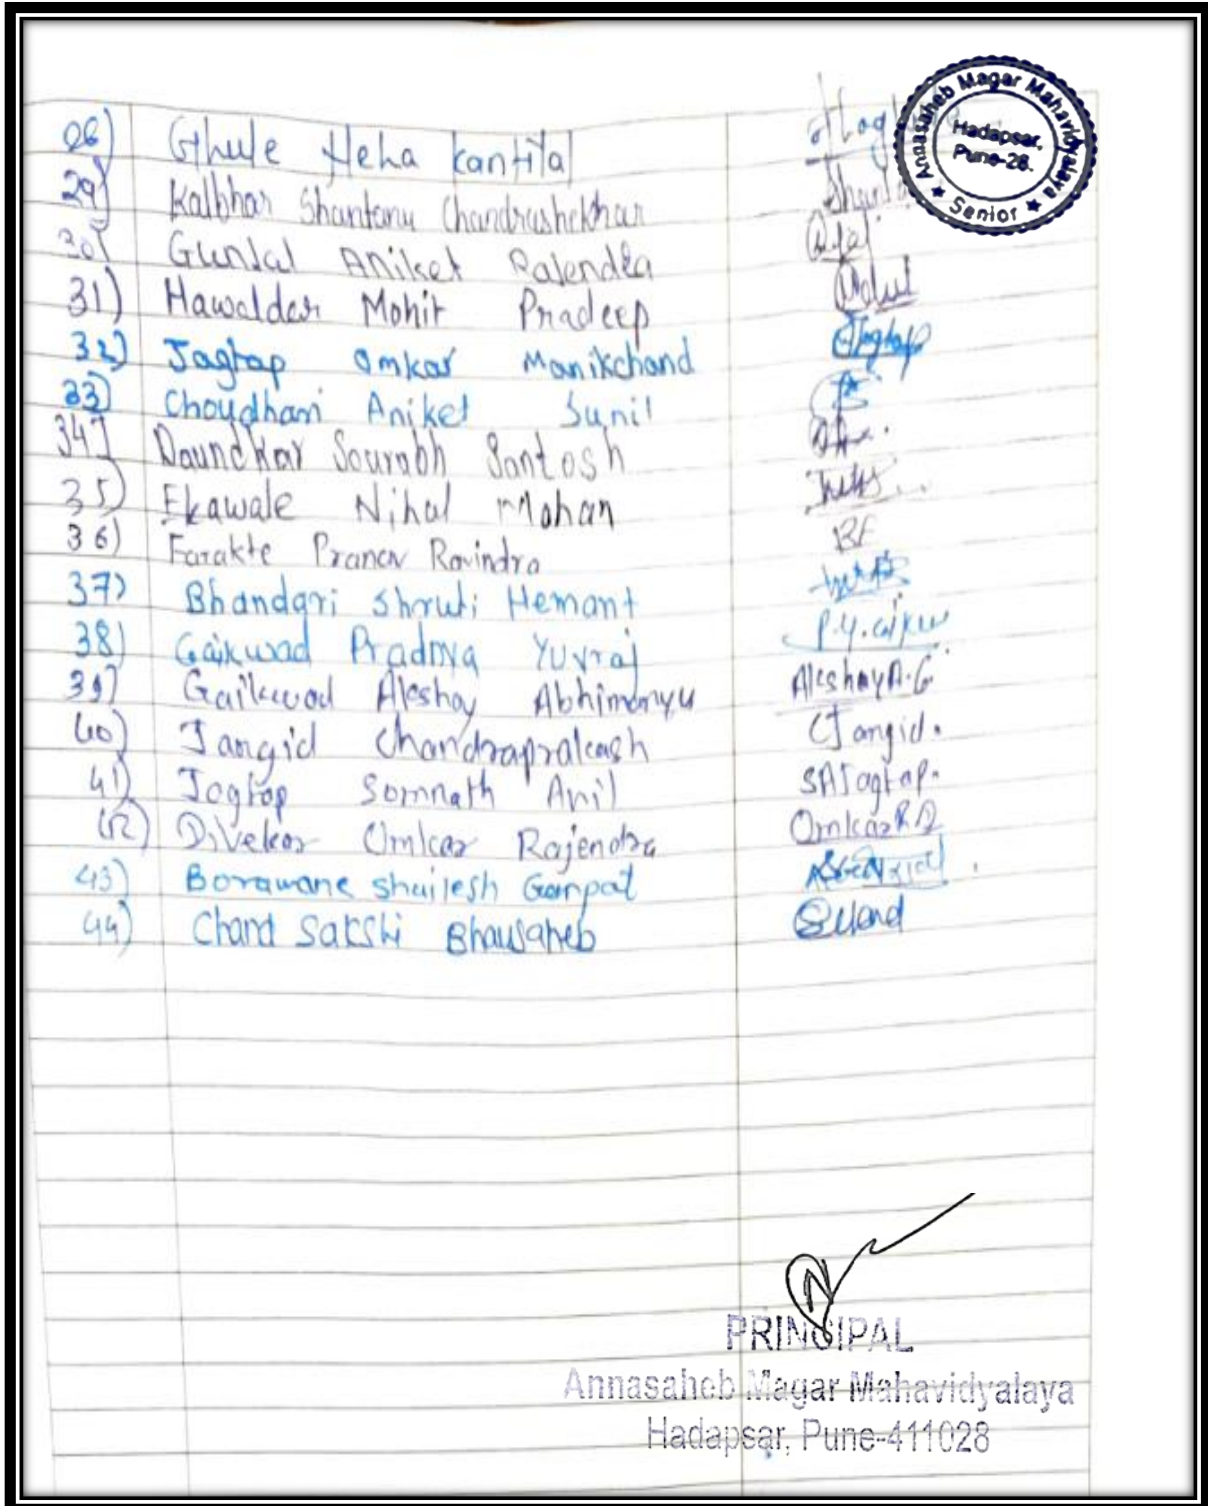 Annasaheb Magar Mahavidyalaya
Hadapsar,
Pune-28.
★ Senior ★
28) Ghule Neha Kantilal
29) Kalbhar Shantanu Chandrashekhar
30) Gunjal Aniket Rajendra
31) Hawaldar Mohit Pradeep
32) Jagtap Omkar Manikchand Jagtap
33) Choudhari Aniket Sunil
34) Daundkar Sourabh Santosh
35) Ekawale Nihal Mohan
36) Farakte Pranav Ravindra RF
37) Bhandari Shruti Hemant
38) Gaikwad Pradnya Yuvraj
39) Gaikwad Akshay Abhimanyu Akshay A.G.
40) Jangid Chandraprakash CJangid.
41) Jagtap Somnath Anil SAJagtap.
42) Divekar Omkar Rajendra Omkar R D
43) Borawane Shailesh Ganpat
44) Chand Sakshi Bhausaheb SChand
PRINCIPAL
Annasaheb Magar Mahavidyalaya
Hadapsar, Pune-411028